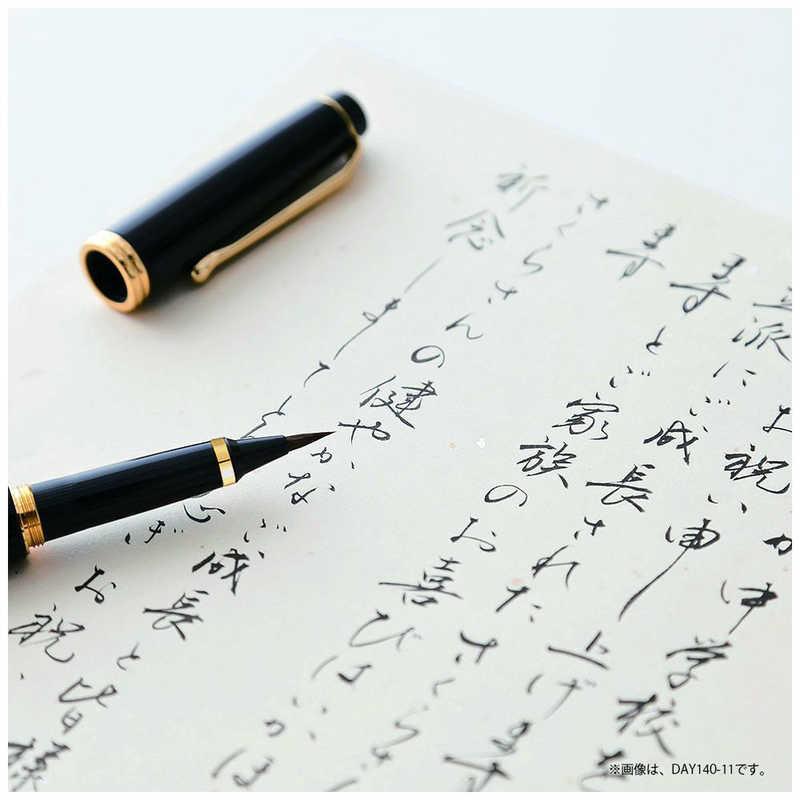 中学校を
お祝い申し上げます
立派にご成長されたさくらさ
とご家族のお喜びはいかほ
ます
さくらさんの健やかなご成長と皆様
祈念しまして
お祝い
※画像は、DAY140-11です。